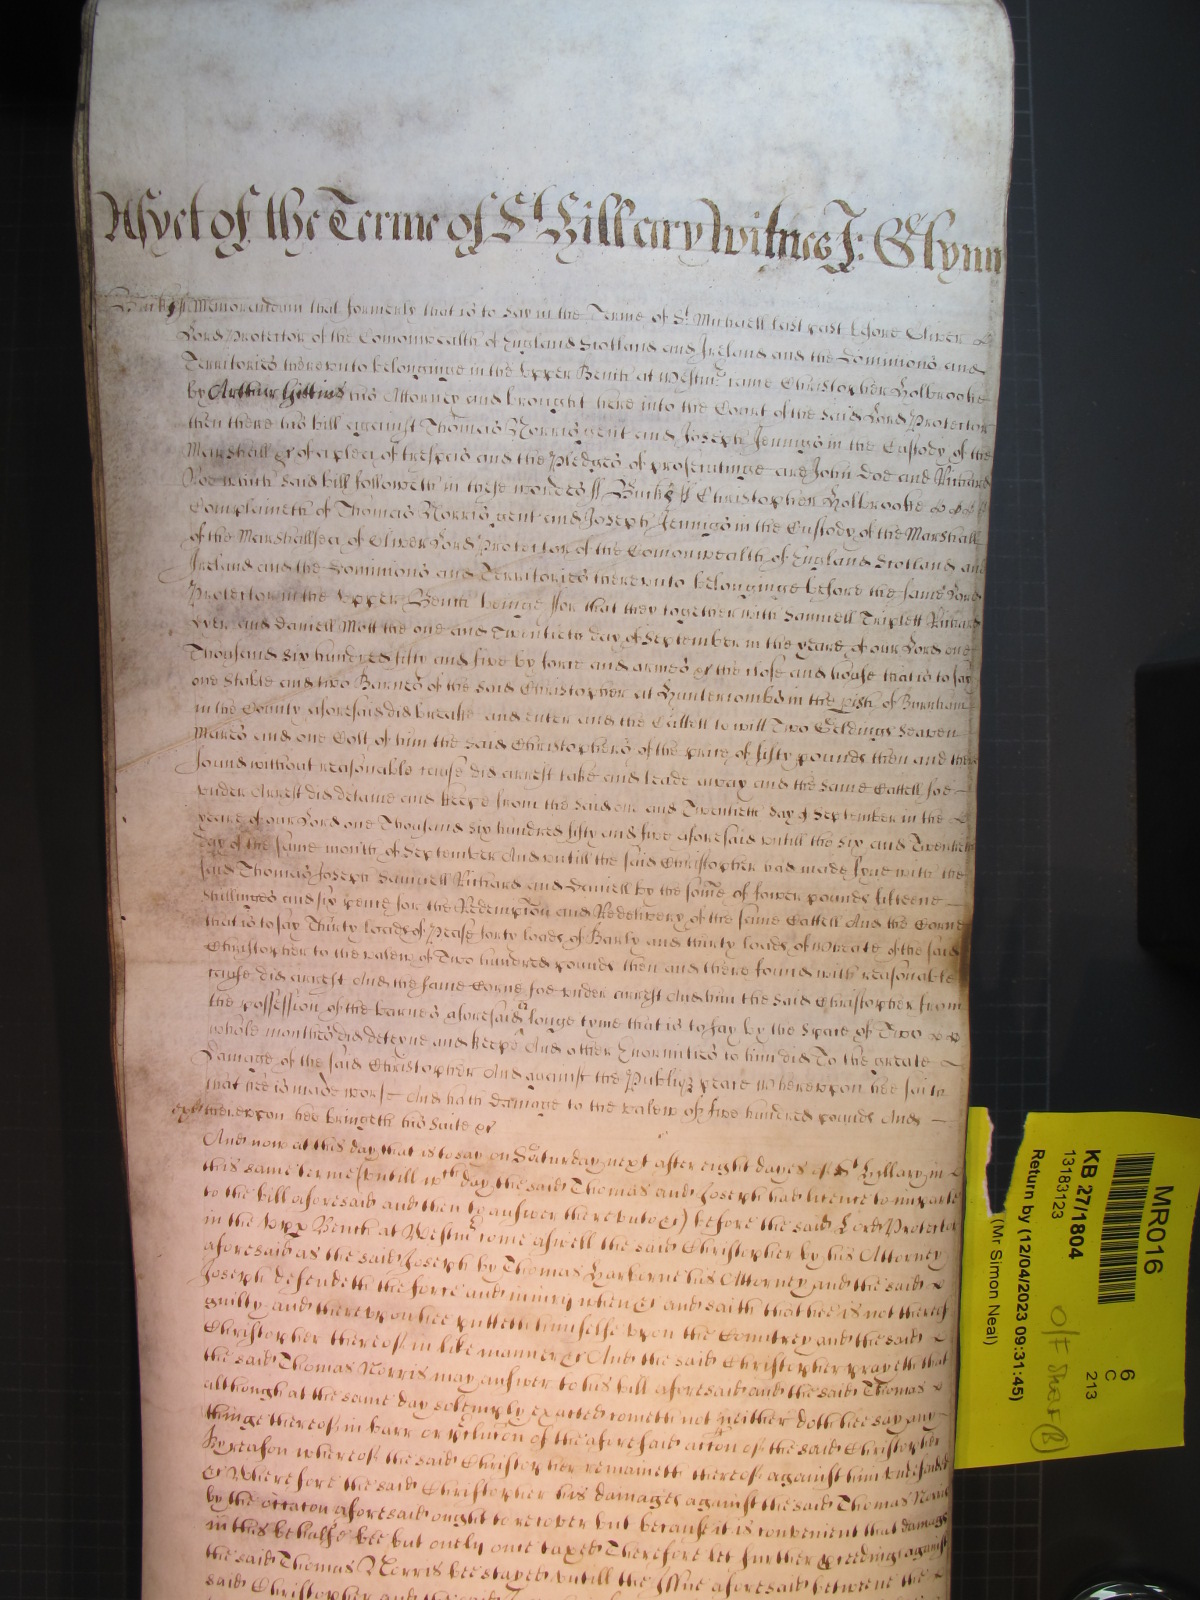 As yet of the Terme of St Hillary Witnes J: Glynn
Buck ss Memorandum that formerly that is to say in the Terme of St Michaell last past before Oliver
Lord Protector of the Comonwealth of England Scotland and Ireland and the Dominions and
Territories thereunto belonginge in the Upper Bench at Westmr came Christopher Holbrooke
by Arthur his Attorney and brought here into the Court of the said Lord Protector
then there his bill against Thomas Norris gent and Joseph Jennigs in the Custody of the
Marshall &c of a plea of trespas and the Pledges of prosecutinge are John Doe and Richard
Roe which said bill followeth in these wordes ss Buck ss Christopher Holbrooke
Complaineth of Thomas Norris gent and Joseph Jennigs in the Custody of the Marshall
of the Marshallsea of Oliver Lord Protector of the Comonwealth of England Scotland and
Ireland and the Dominions and Territories thereunto belonginge before the same Lord
Protector in the Upper Bench beinge ffor that they together with Samuell Triplett Richard
and Daniell Mott the one and Twentieth day of September in the yeare of our Lord one
Thousand six hundred fifty and five by force and armes &c the close and house that is to say
one Stable and two Barnes of the said Christopher at Huntercombs in the pish of Burnham
in the County aforesaid did breake and enter and the Cattell to witt Two Geldings Seaven
Mares and one Colt of him the said Christophers of the price of fifty pounds then and there
found without reasonable cause did arrest take and leade away and the same Cattell soe
under Arrest did detaine and keepe from the said one and Twentieth day of September in the
yeare of our Lord one Thousand six hundred fifty and five aforesaid untill the six and Twentieth
day of the same month of September And untill the said Christopher had made fyne with the
said Thomas Joseph Samuell Richard and Daniell by the some of fower pounds fifteene
shillinges and six pence for the Redempcon and Redelivery of the same Cattell And the Corne
that is to say Thirty loads of Pease forty loads of Barly and thirty loads of Wheate of the said
Christopher to the valew of Two hundred pounds then and there found with reasonable
cause did arrest And the same Corne soe under arrest And him the said Christopher from
the possession of the barnes aforesaid a longe tyme that is to say by the space of Two
whole monthes did deteyne and keepe And other Enormities to him did To the greate
Damage of the said Christopher And against the Publiq peace Whereupon hee saith
that hee is made worse And hath damage to the valew of five hundred pounds And
thereupon hee bringeth his suite &c
And now at this day that is to say on Saturday next after eight dayes of St Hillary in
this same terme (untill wch day the said Thomas and Joseph had licence to imparle
to the bill aforesaid and then to answer thereunto &c) before the said Lord Protector
in the Upp Bench at Westmr come aswell the said Christopher by his Attorney
aforesaid as the said Joseph by Thomas Harborne his Attorney and the said
Joseph defendeth the force and iniury when &c and saith that hee is not thereof
guilty and thereupon hee putteth himselfe upon the Countrey and the said
Christopher thereof in like manner &c And the said Christopher prayeth that
the said Thomas Norris may answer to his bill aforesaid and the said Thomas
although at the same day solempnly exacted cometh not neither doth hee say any
thinge thereof in barr or of the aforesaid accon of the said Christopher
By reason whereof the said Christopher remaineth thereof against him undefended
&c Wherefore the said Christopher his damages against the said Thomas Norris
by the occacon aforesaid ought to recover but because it is convenient that damages
in this behalfe bee but onely once taxed Therefore let further pceedings against
the said Thomas Norris bee stayed untill the Issue aforesaid betweene the
said Christopher and the said
MR016
KB 27/1804
13183123
Return by (12/04/2023 09:31:45)
(Mr Simon Neal)
6
C
213
O/F Shelf (B)